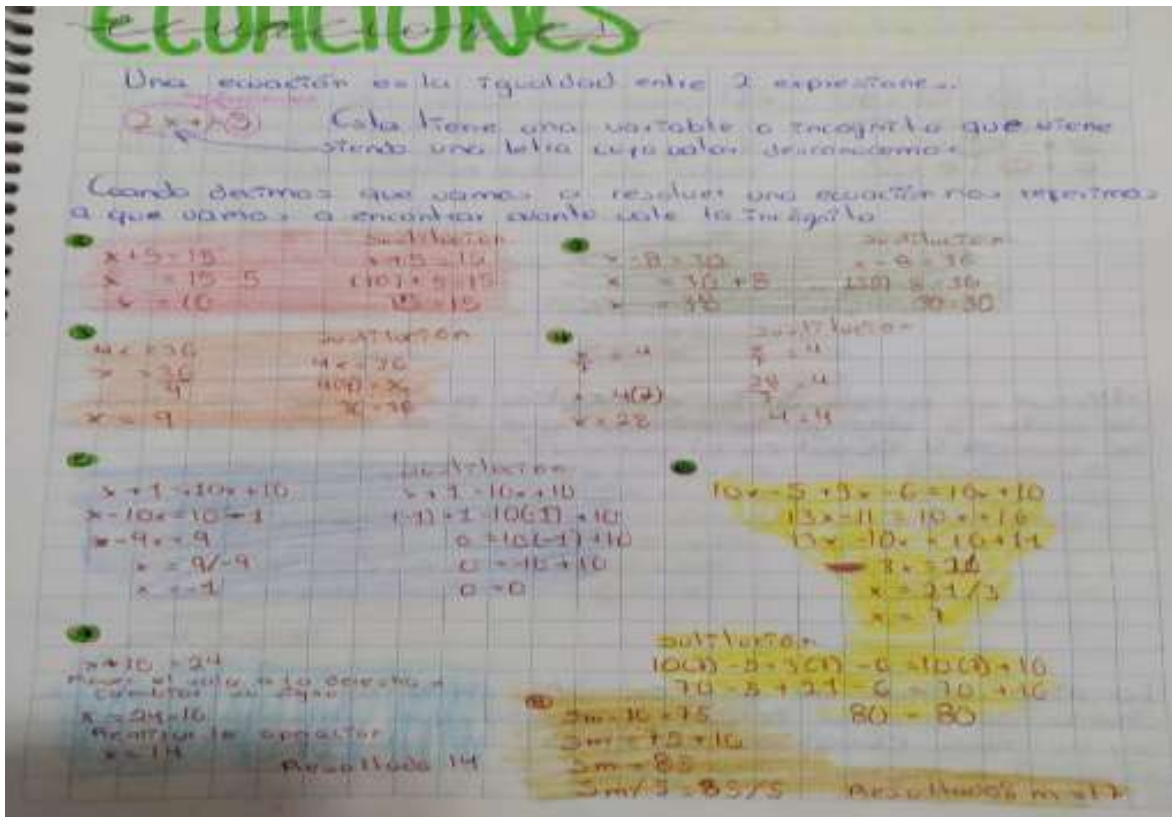 ECUACIONES
Una ecuación es la igualdad entre 2 expresiones.
Esta tiene una variable o incognita que viene
siendo una letra cuyo valor desconocemos.
Cuando decimos que vamos a resolver una ecuación nos referimos
a que vamos a encontrar cuanto vale la incógnita
x + 5 = 15
x = 15 - 5
x = 10
Sustitución
x + 5 = 15
(10) + 5 = 15
15 = 15
x - 8 = 30
x = 30 + 8
x = 38
Sustitución
x - 8 = 30
(38) - 8 = 30
30 = 30
4x = 36
x = 36/4
x = 9
Sustitución
4x = 36
4(9) = 36
36 = 36
x/7 = 4
x = 4(7)
x = 28
Sustitución
x/7 = 4
28/7 = 4
4 = 4
x + 1 = 10x + 10
x - 10x = 10 - 1
- 9x = 9
x = 9/-9
x = -1
Sustitución
x + 1 = 10x + 10
(-1) + 1 = 10(-1) + 10
0 = 10(-1) + 10
0 = -10 + 10
0 = 0
10x - 5 + 3x - 6 = 10x + 10
13x - 11 = 10x + 10
13x - 10x = 10 + 11
3x = 21
x = 21/3
x = 7
10(7) - 5 + 3(7) - 6 = 10(7) + 10
70 - 5 + 21 - 6 = 70 + 10
80 = 80
x + 10 = 24
cambiar su signo
x = 24 - 10
Realizar la operación
x = 14
Resultado 14
5m - 10 = 75
5m = 75 + 10
5m = 85
5m/5 = 85/5
Resultado m = 17